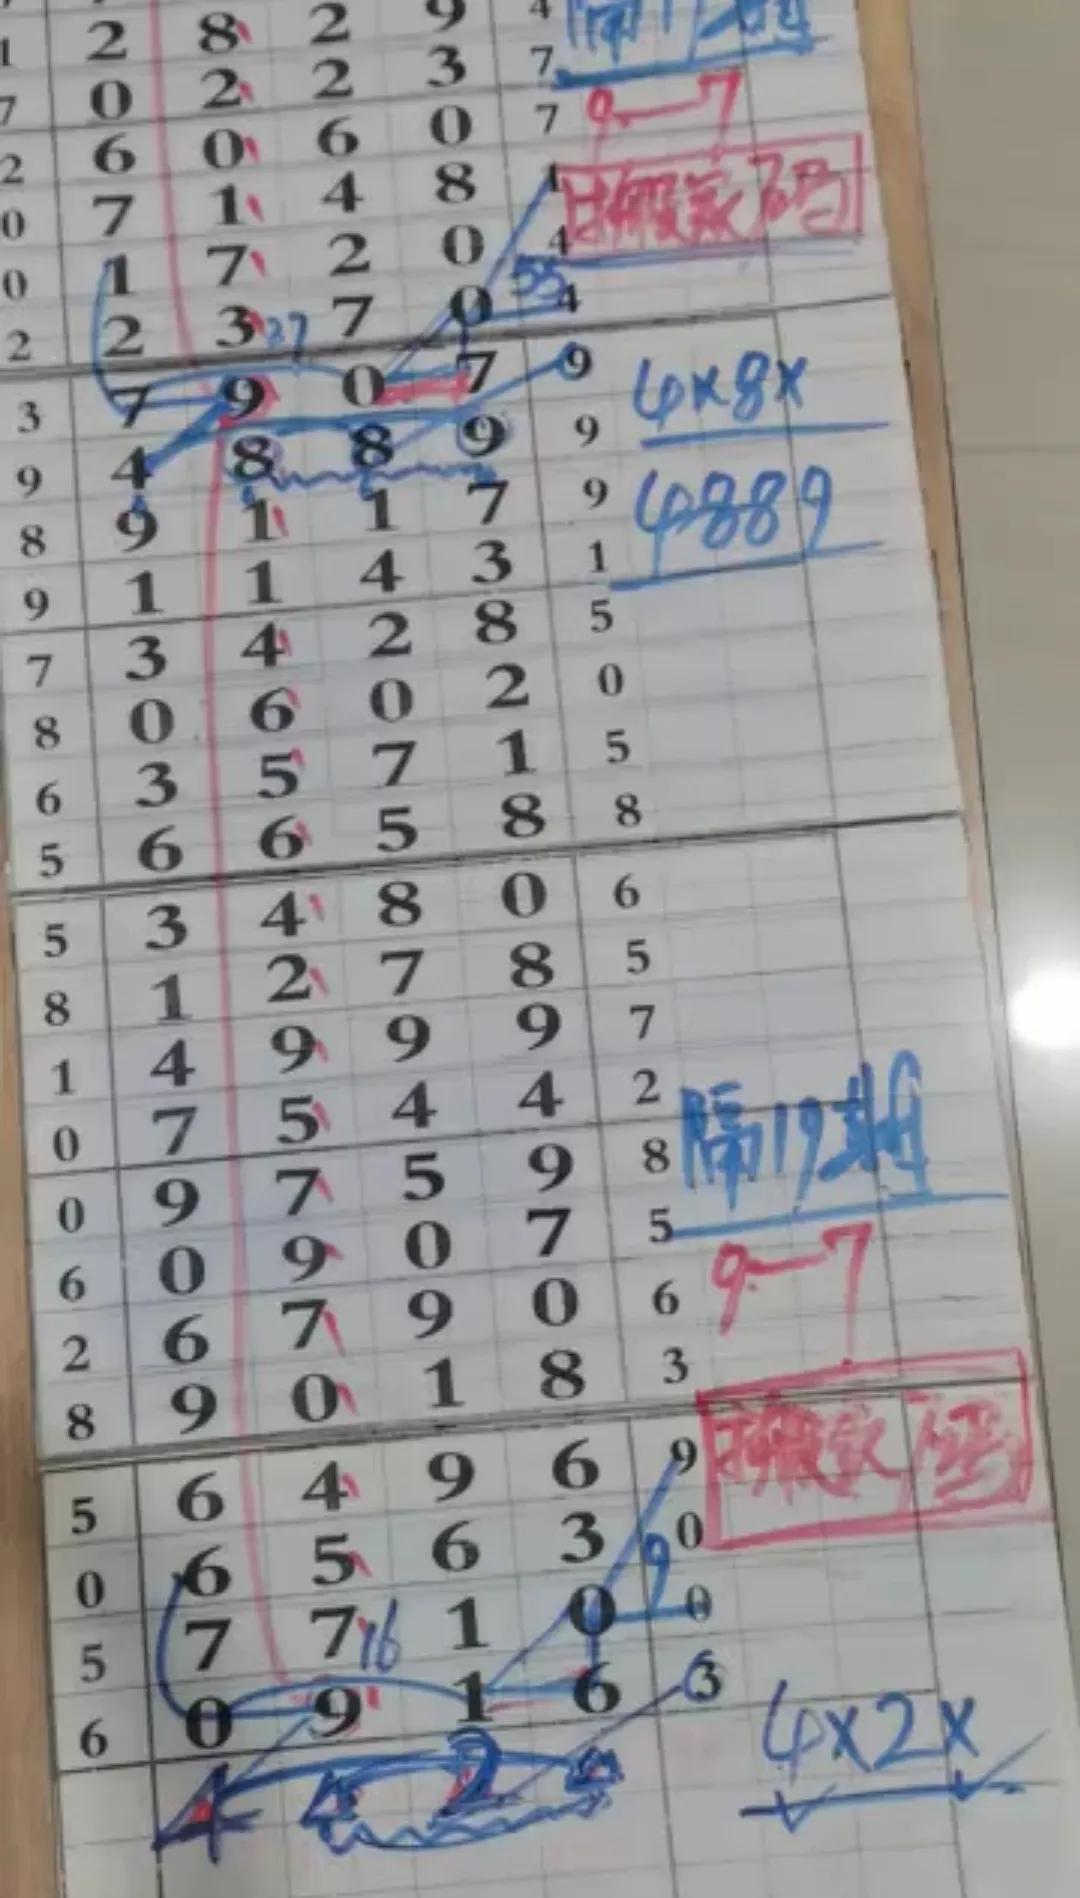 1 2 8 2 9 4
7 0 2 2 3 7
2 6 0 6 0 7
9-7
0 7 1 4 8 1
0 1 7 2 0 4
2 2 3 37 7 0 55 4
3 7 9 0 7 9 4×8×
9 4 8 8 9 9
8 9 1 1 7 9 4889
9 1 1 4 3 1
7 3 4 2 8 5
8 0 6 0 2 0
6 3 5 7 1 5
5 6 6 5 8 8
5 3 4 8 0 6
8 1 2 7 8 5
1 4 9 9 9 7
0 7 5 4 4 2
0 9 7 5 9 8 隔19期
6 0 9 0 7 5
2 6 7 9 0 6 9-7
8 9 0 1 8 3
5 6 4 9 6 9
0 6 5 6 3 0
5 7 7 16 1 0 9 0
6 0 9 1 6 3 4×2×
4 2